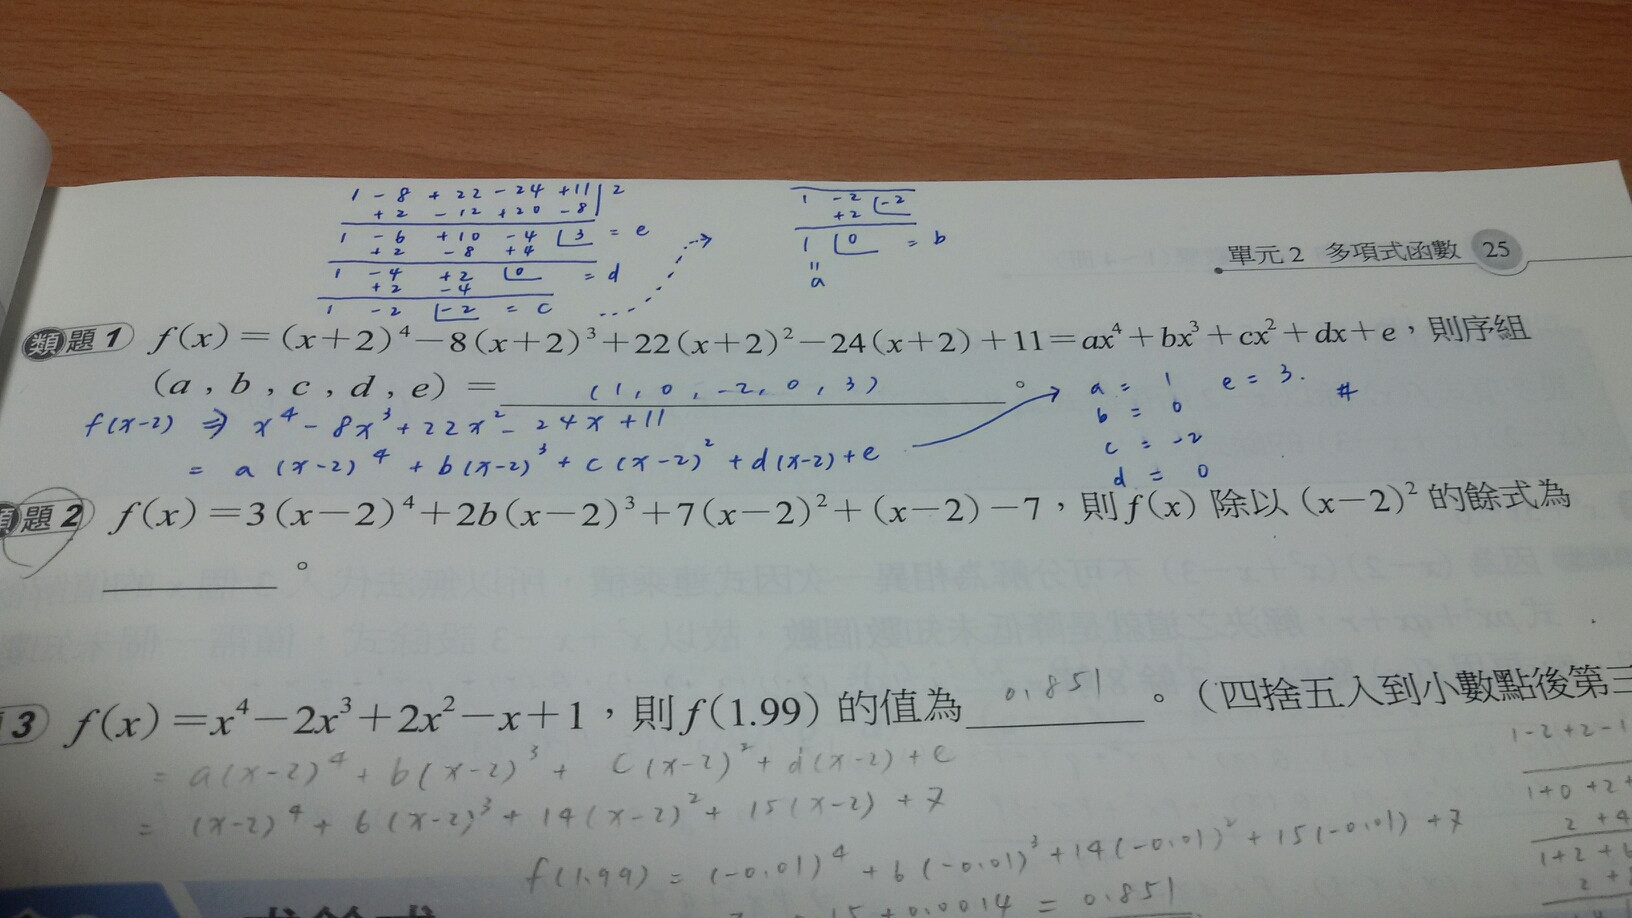 1 - 8 + 22 - 24 + 11 | 2
+ 2 - 12 + 20 - 8
1 - 6 + 10 - 4 | 3 = e
+ 2 - 8 + 4
1 - 4 + 2 | 0 = d
+ 2 - 4
1 - 2 | -2 = c
1 - 2 | -2
+ 2
1 | 0 = b
"
a
單元 2 多項式函數 25
類題 1 f(x)=(x+2)⁴−8(x+2)³+22(x+2)²−24(x+2)+11=ax⁴+bx³+cx²+dx+e，則序組
(a , b , c , d , e) = (1, 0, -2, 0, 3) 。
f(x-2) ⇒ x⁴ - 8x³ + 22x² - 24x + 11
= a(x-2)⁴ + b(x-2)³ + c(x-2)² + d(x-2) + e
a = 1 e = 3. #
b = 0
c = -2
d = 0
題 2 f(x)=3(x−2)⁴+2b(x−2)³+7(x−2)²+(x−2)−7，則 f(x) 除以 (x−2)² 的餘式為
。
3 f(x)=x⁴−2x³+2x²−x+1，則 f(1.99) 的值為 0.851 。(四捨五入到小數點後第三
= a(x-2)⁴ + b(x-2)³ + c(x-2)² + d(x-2) + e
= (x-2)⁴ + 6(x-2)³ + 14(x-2)² + 15(x-2) + 7
f(1.99) = (-0.01)⁴ + 6(-0.01)³ + 14(-0.01)² + 15(-0.01) + 7
+ 0.0014 = 0.851
1 - 2 + 2 - 1
1 + 0 + 2 +
2 + 4
1 + 2 + 6
2 +